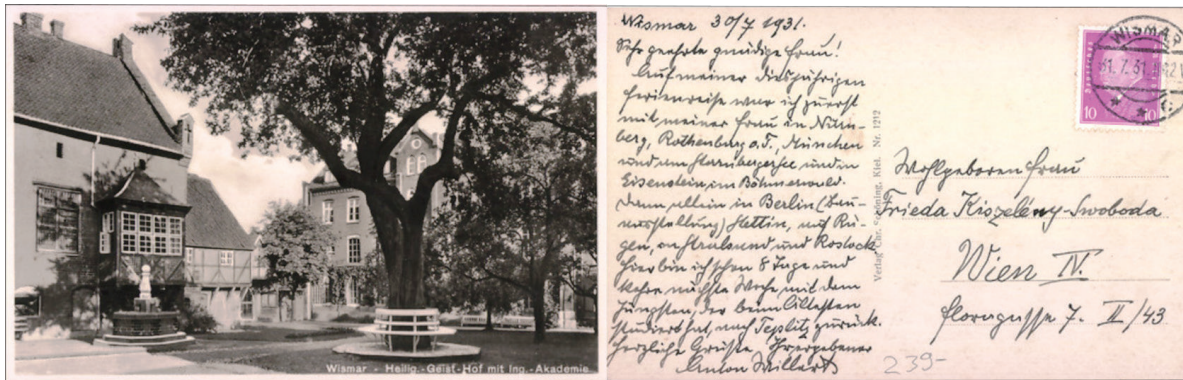 Wismar - Heilig.-Geist-Hof mit Ing.-Akademie.
Wismar 30/7 1931.
Sehr geehrte gnädige Frau!
Auf meiner diesjährigen
Ferienreise war ich zuerst
mit meiner Frau in Nürn-
berg, Rothenburg o.T., München
und am Starnbergersee und in
Eisenstein, im Böhmerwald.
Dann allein in Berlin (Bau-
ausstellung) Stettin, auf Rü-
gen, in Stralsund und Rostock
Hier bin ich schon 8 Tage und
kehre nächste Woche mit dem
Jüngsten, der beim
studiert hat, nach Teplitz zurück.
Herzliche Grüße Ihr ergebener
Anton Willert
Verlag Chr. Schöning, Kiel. Nr. 1212
WISMAR
31.7.31.
10 10
Wohlgeboren Frau
Frieda Kiszelény-Swoboda
Wien IV.
Floragasse 7. II/43
239-